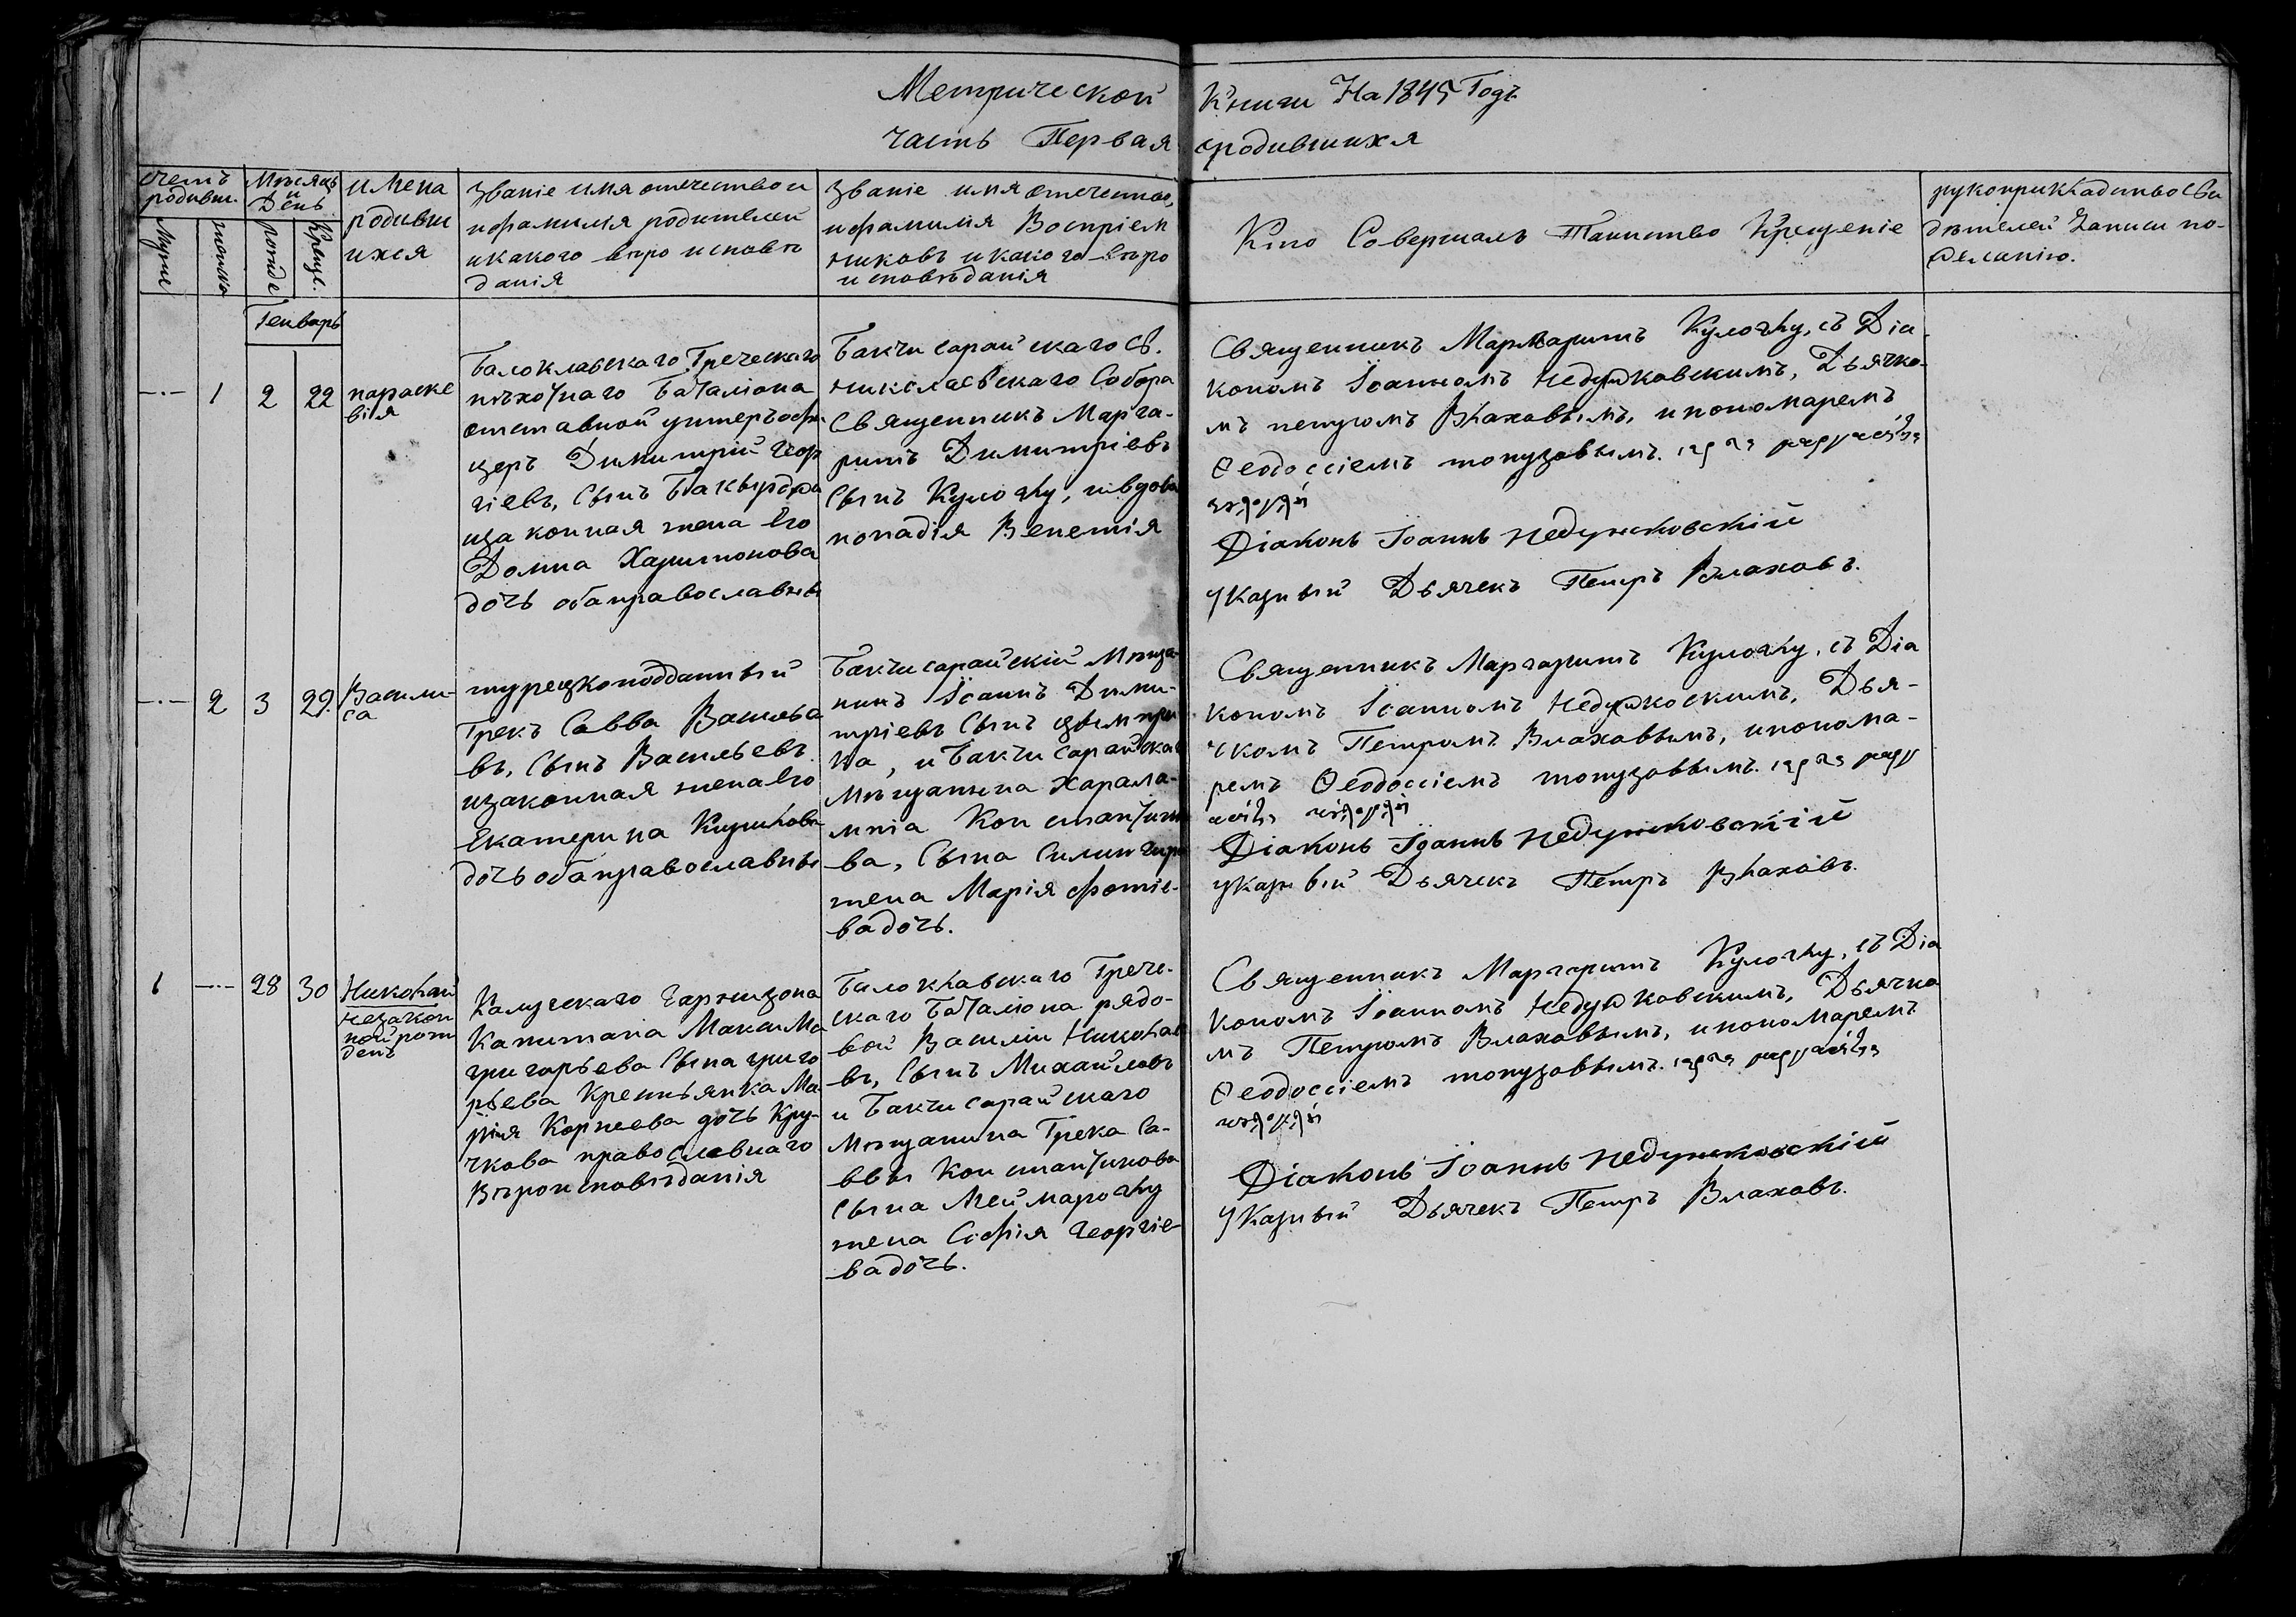 Метрической Книги На 1845 Годъ
часть Первая ородившихся
счетъ родивш.
Мѣсяцъ и День
имена родивши ихся
Званіе имя отечество и
ифамилія родителей
икакого вѣро исповѣ
данія
Званіе имя отечество,
ифамилія Воспріем
никовъ икакого вѣро
исповѣданія
Кто Совершалъ Таинство Крещеніе
рукоприкладство Сви
дѣтелей Записи по-
желанію.
Мужс
женско
рожде
Креще.
Генварь
—·— 1 2 22
параске
вія
Балоклавскаго Греческаго
пѣхотнаго Баталіона
отставной унтеръ офи
церъ Димитрій Геор
гіевъ, Сынъ
изаконная жена Его
Домна Харитонова
дочь обаправославные
Бакчисарайскаго Св.
николаевскаго Собора
Священникъ Марга-
ритъ Димитріевъ
Сынъ Кулогну, ивдова
попадія Венетія
Священникъ Маргаритъ Кулогну, съ Діа-
кономъ Іоанномъ Недзжковскимъ, Дьячко-
мъ петромъ Влаховымъ, ипономаремъ
Ѳеодоссіемъ топузовымъ.
Діаконъ Іоаннъ Недзжковскій
Указный Дьячекъ Петръ Влаховъ.
—·— 2 3 29.
Васили-
са
турецкоподданный
Грекъ Савва Василье
въ, Сынъ Васильевъ
изаконная жена Его
Екатерина
дочь обаправославные
Бакчисарайскій Мѣща-
нинъ Іоаннъ Дими-
тріевъ Сынъ
ка, и Бакчисарайскаг
Мѣщанина Харала-
мпіа Константино
ва, Сына
жена Марія Фотіе-
ва дочь.
Священникъ Маргаритъ Кулогну, съ Діа
кономъ Іоанномъ Недзжкоскимъ, Дья-
чкомъ Петромъ Влаховымъ, ипонома-
ремъ Ѳеодоссіемъ топузовымъ.
Діаконъ Іоаннъ Недзжковскій
указный Дьячекъ Петръ Влаховъ.
1 —·— 28 30
Николай
незакон
нойрож
денъ
Калужскаго Гарнизона
Капитана Макси Ма
григорьева Сына григо
рьева Крестьянка Ма
рія Корнеева дочь Кру-
чкова православнаго
Вѣроисповѣданія
Балоклавскаго Грече-
скаго Баталіона рядо-
вой Василій Николае
въ, Сынъ Михайловъ
и Бакчисарайскаго
Мѣщанина Грека Са-
ввы Константинова
Сына Меймарогну
жена Софія Георгіе-
ва дочь.
Священникъ Маргаритъ Кулогну, съ Діа
кономъ Іоанномъ Недзжковскимъ, Дьячко
мъ Петромъ Влаховымъ, ипономаремъ
Ѳеодоссіемъ топузовымъ.
Діаконъ Іоаннъ Недзжковскій
Указный Дьячекъ Петръ Влаховъ.